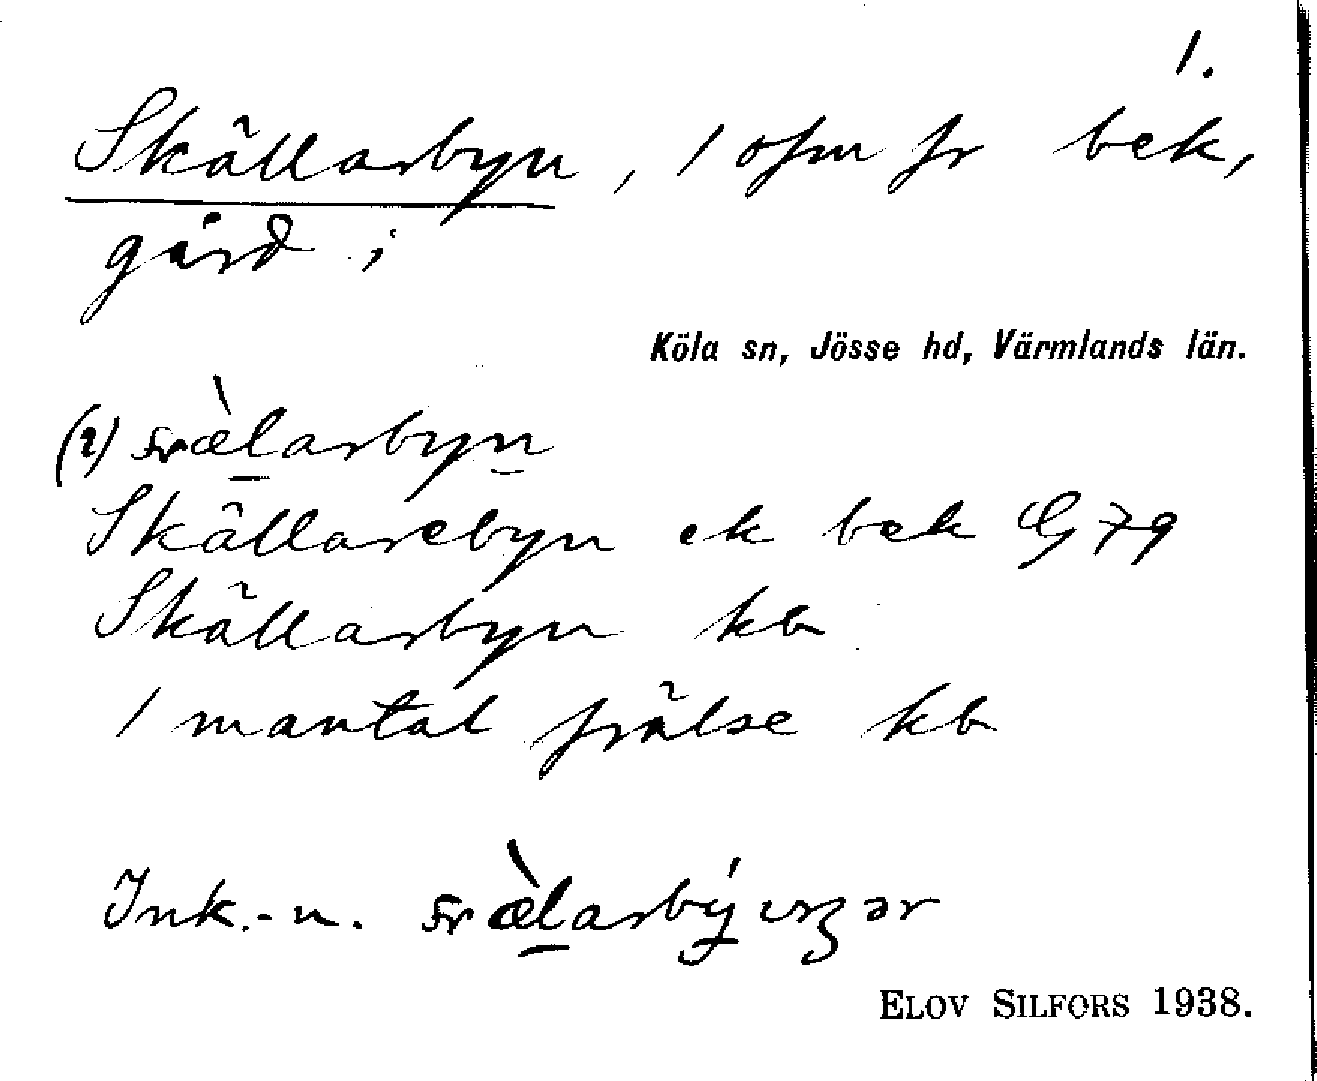 1.
Skällarbyn, 1 ofm fr bek,
gård i
Köla sn, Jösse hd, Värmlands län.
(i)
Skällarebyn ek bek G79
Skällarbyn kb
1 mantal frälse kb
Ink.-n.
ELOV SILFORS 1938.